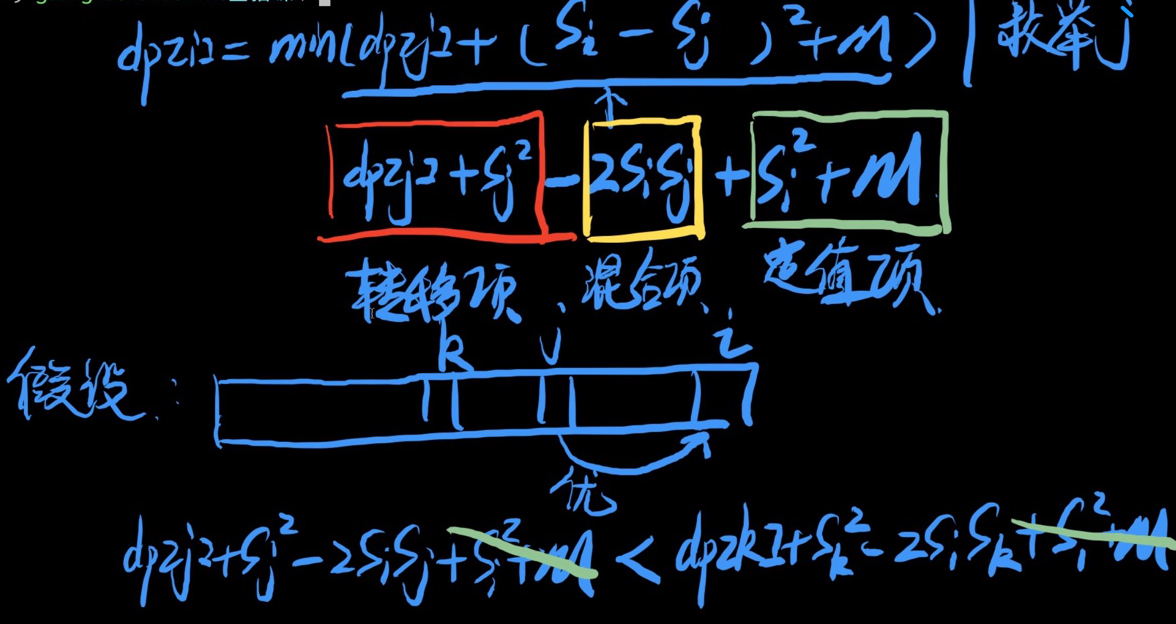 dp[i] = min(dp[j] + (Si - Sj)²+M) | 枚举j
dp[j] + Sj² - 2SiSj + Si² + M
转移项、混合项、定值项.
k j i
假设:
优
dp[j]+Sj² - 2SiSj + Si² + M < dp[k]+Sk² - 2SiSk + Si² + M